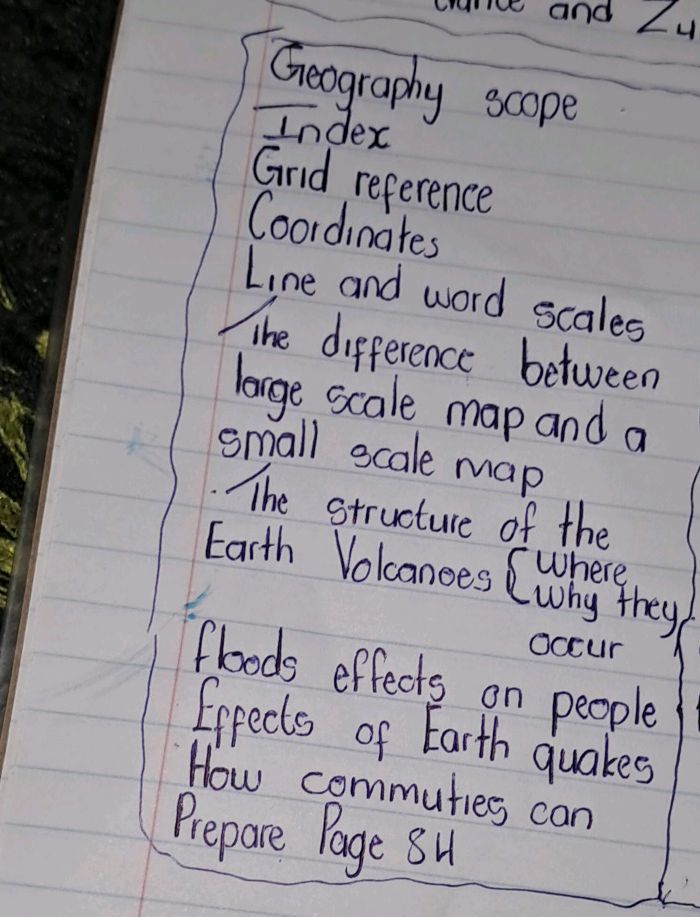 and Zu
Geography scope
Index
Grid reference
Coordinates
Line and word scales
The difference between
large scale map and a
small scale map
. The structure of the
Earth Volcanoes { Where
Why they
occur
floods effects on people
Effects of Earth quakes
How commuties can
Prepare Page 84